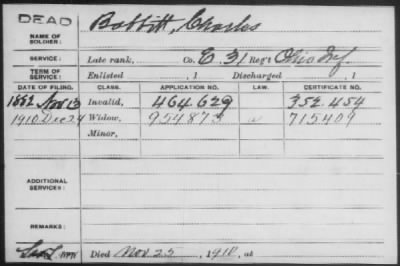 DEAD
NAME OF SOLDIER: Babbitt, Charles
SERVICE: Late rank, Co. E. 31 Reg't Ohio Inf
TERM OF SERVICE: Enlisted , 1 Discharged , 1
DATE OF FILING. CLASS. APPLICATION NO. LAW. CERTIFICATE NO.
1882 Nov 13 Invalid, 464.629 352.454
1910 Dec 24 Widow, 954873 715409
Minor,
ADDITIONAL SERVICES:
REMARKS:
Died Nov. 25, 1910, at